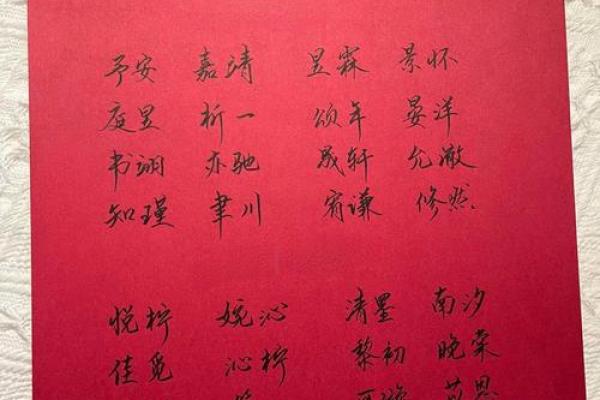 予安 嘉靖 昱霖 景怀
庭昱 析一 颂年 晏洋
书翊 亦驰 晟轩 允澈
知瑾 聿川 宥谦 修然
悦柠 婉沁 清墨 南汐
佳觅 沁柠 黎初 晚棠